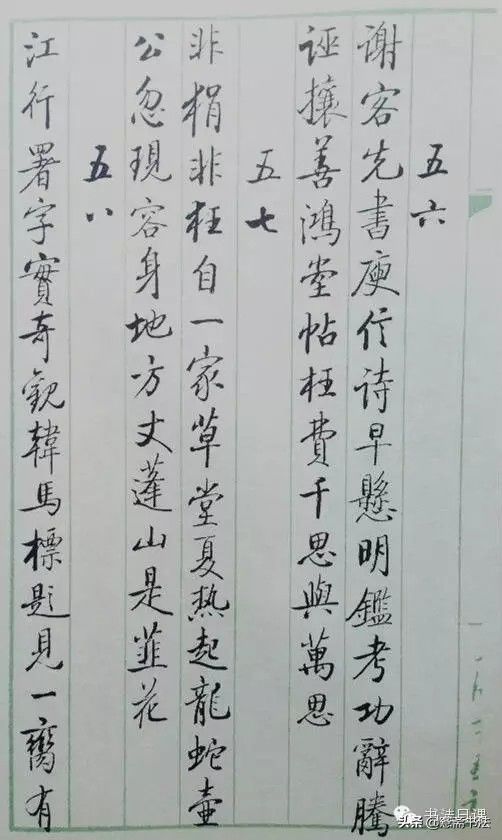 五六
谢客先書庾信诗早懸明鑑考功辭騰
诬攘善鴻堂帖枉費千思與萬思
五七
非狷非狂自一家草堂夏热起龍蛇壶
公忽現容身地方丈蓬山是韮花
五八
江行署字實奇觀韓馬標題見一臠有
书法日课
头条@惢斋书法